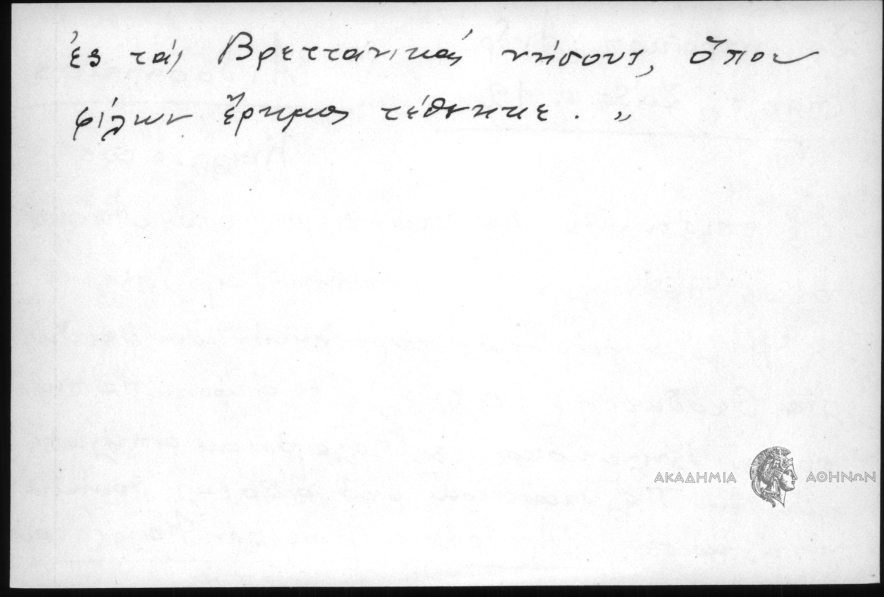 ἐς τάς Βρεττανικάς νήσους, ὅπου
φίλων ἔρημος τέθνηκε. „
ΑΚΑΔΗΜΙΑ ΑΘΗΝΩΝ